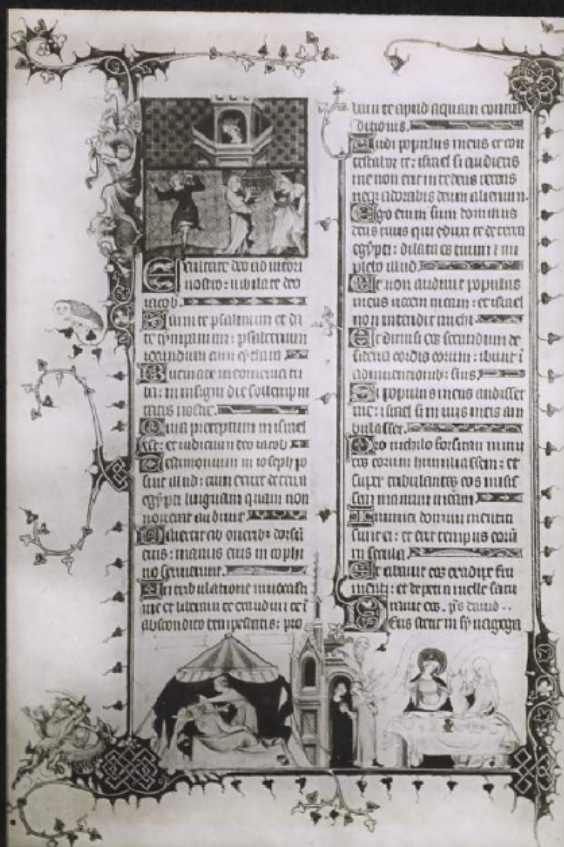 Exultate deo adiutori
nostro: iubilate deo
iacob.
Sumite psalmum et da
te tympanum: psalterium
iocundum cum cythara
Buccinate in neomenia tu
ba: in insigni die sollempni
tatis nostre.
Quia preceptum in israel
est: et iudicium deo iacob
Testimonium in ioseph po
suit illud: cum exiret de terra
egypti linguam quam non
nouerat audiuit.
Diuertit ab oneribꝰ dorsū
eius: manus eius in cophi
no seruierunt.
In tribulatione inuocasti
me et liberaui te exaudiui te ī
abscondito tempestatis: pro
baui te apud aquam contra
dictionis.
Audi populus meus et con
testabor te: israel si audieris
me non erit in te deus recens
neqꝫ adorabis deum alienum.
Ego enim sum dominus
deus tuus qui eduxi te de terra
egypti: dilata os tuum ⁊ im
plebo illud.
Et non audiuit populus
meus uocem meam: et israel
non intendit michi
Et dimisi eos secundum de
sideria cordis eorum: ibunt ī
adinuencionibꝰ suis.
Si populus meus audisset
me: israel si in uiis meis am
bulasset.
Pro nichilo forsitan inimi
cos eorum humiliassem: et
super tribulantes eos misis
sem manum meam
Inimici domini mentiti
sunt ei: et erit tempus eorū
in secula
Et cibauit eos ex adipe fru
menti: et de petra melle satu
rauit eos. p̄s dauid
Deus stetit in synagoga